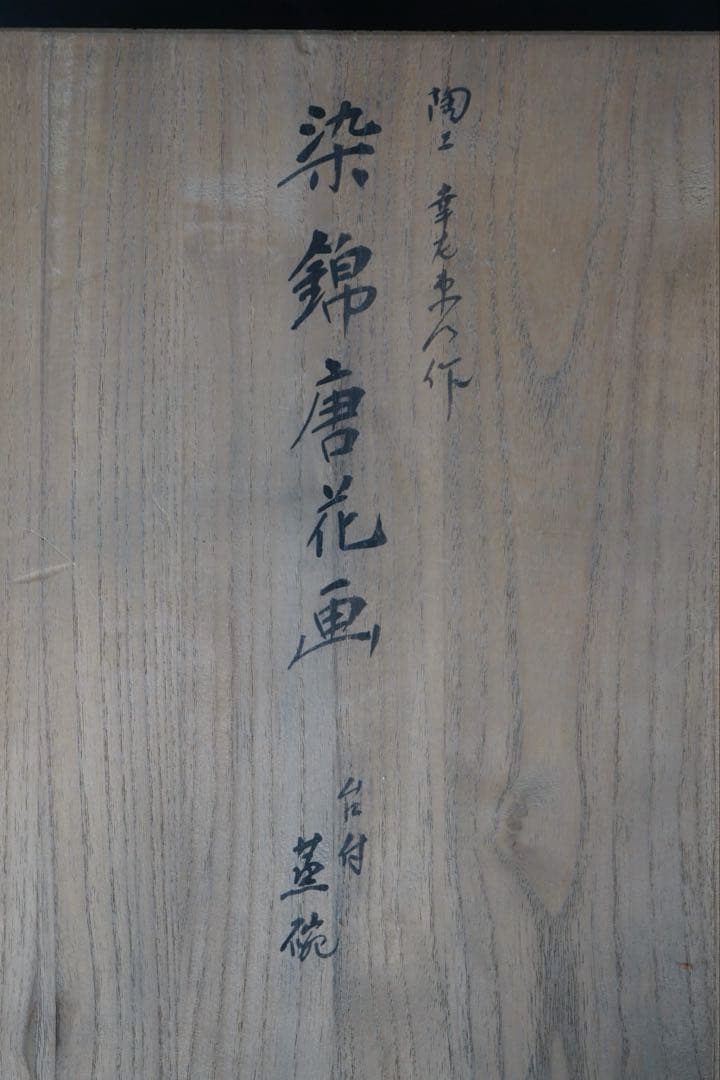 陶工 幸右衛門作
染錦唐花画
台付
蒸碗